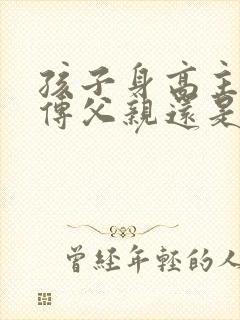 孩子身高主
傳父親還是
曾經年輕的人